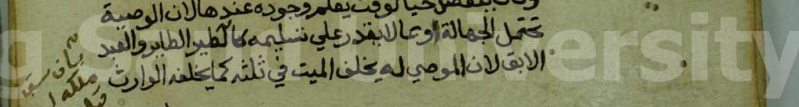 وكان ينفصل حيا لوقت يعلم وجوده عندها لان الوصية
تحتمل الجهالة او بما لا يقدر علي تسليمه كالطير الطاير والعبد
الابق لان الموصي له يخلف الميت في ثلثه كما يخلفه الوارث